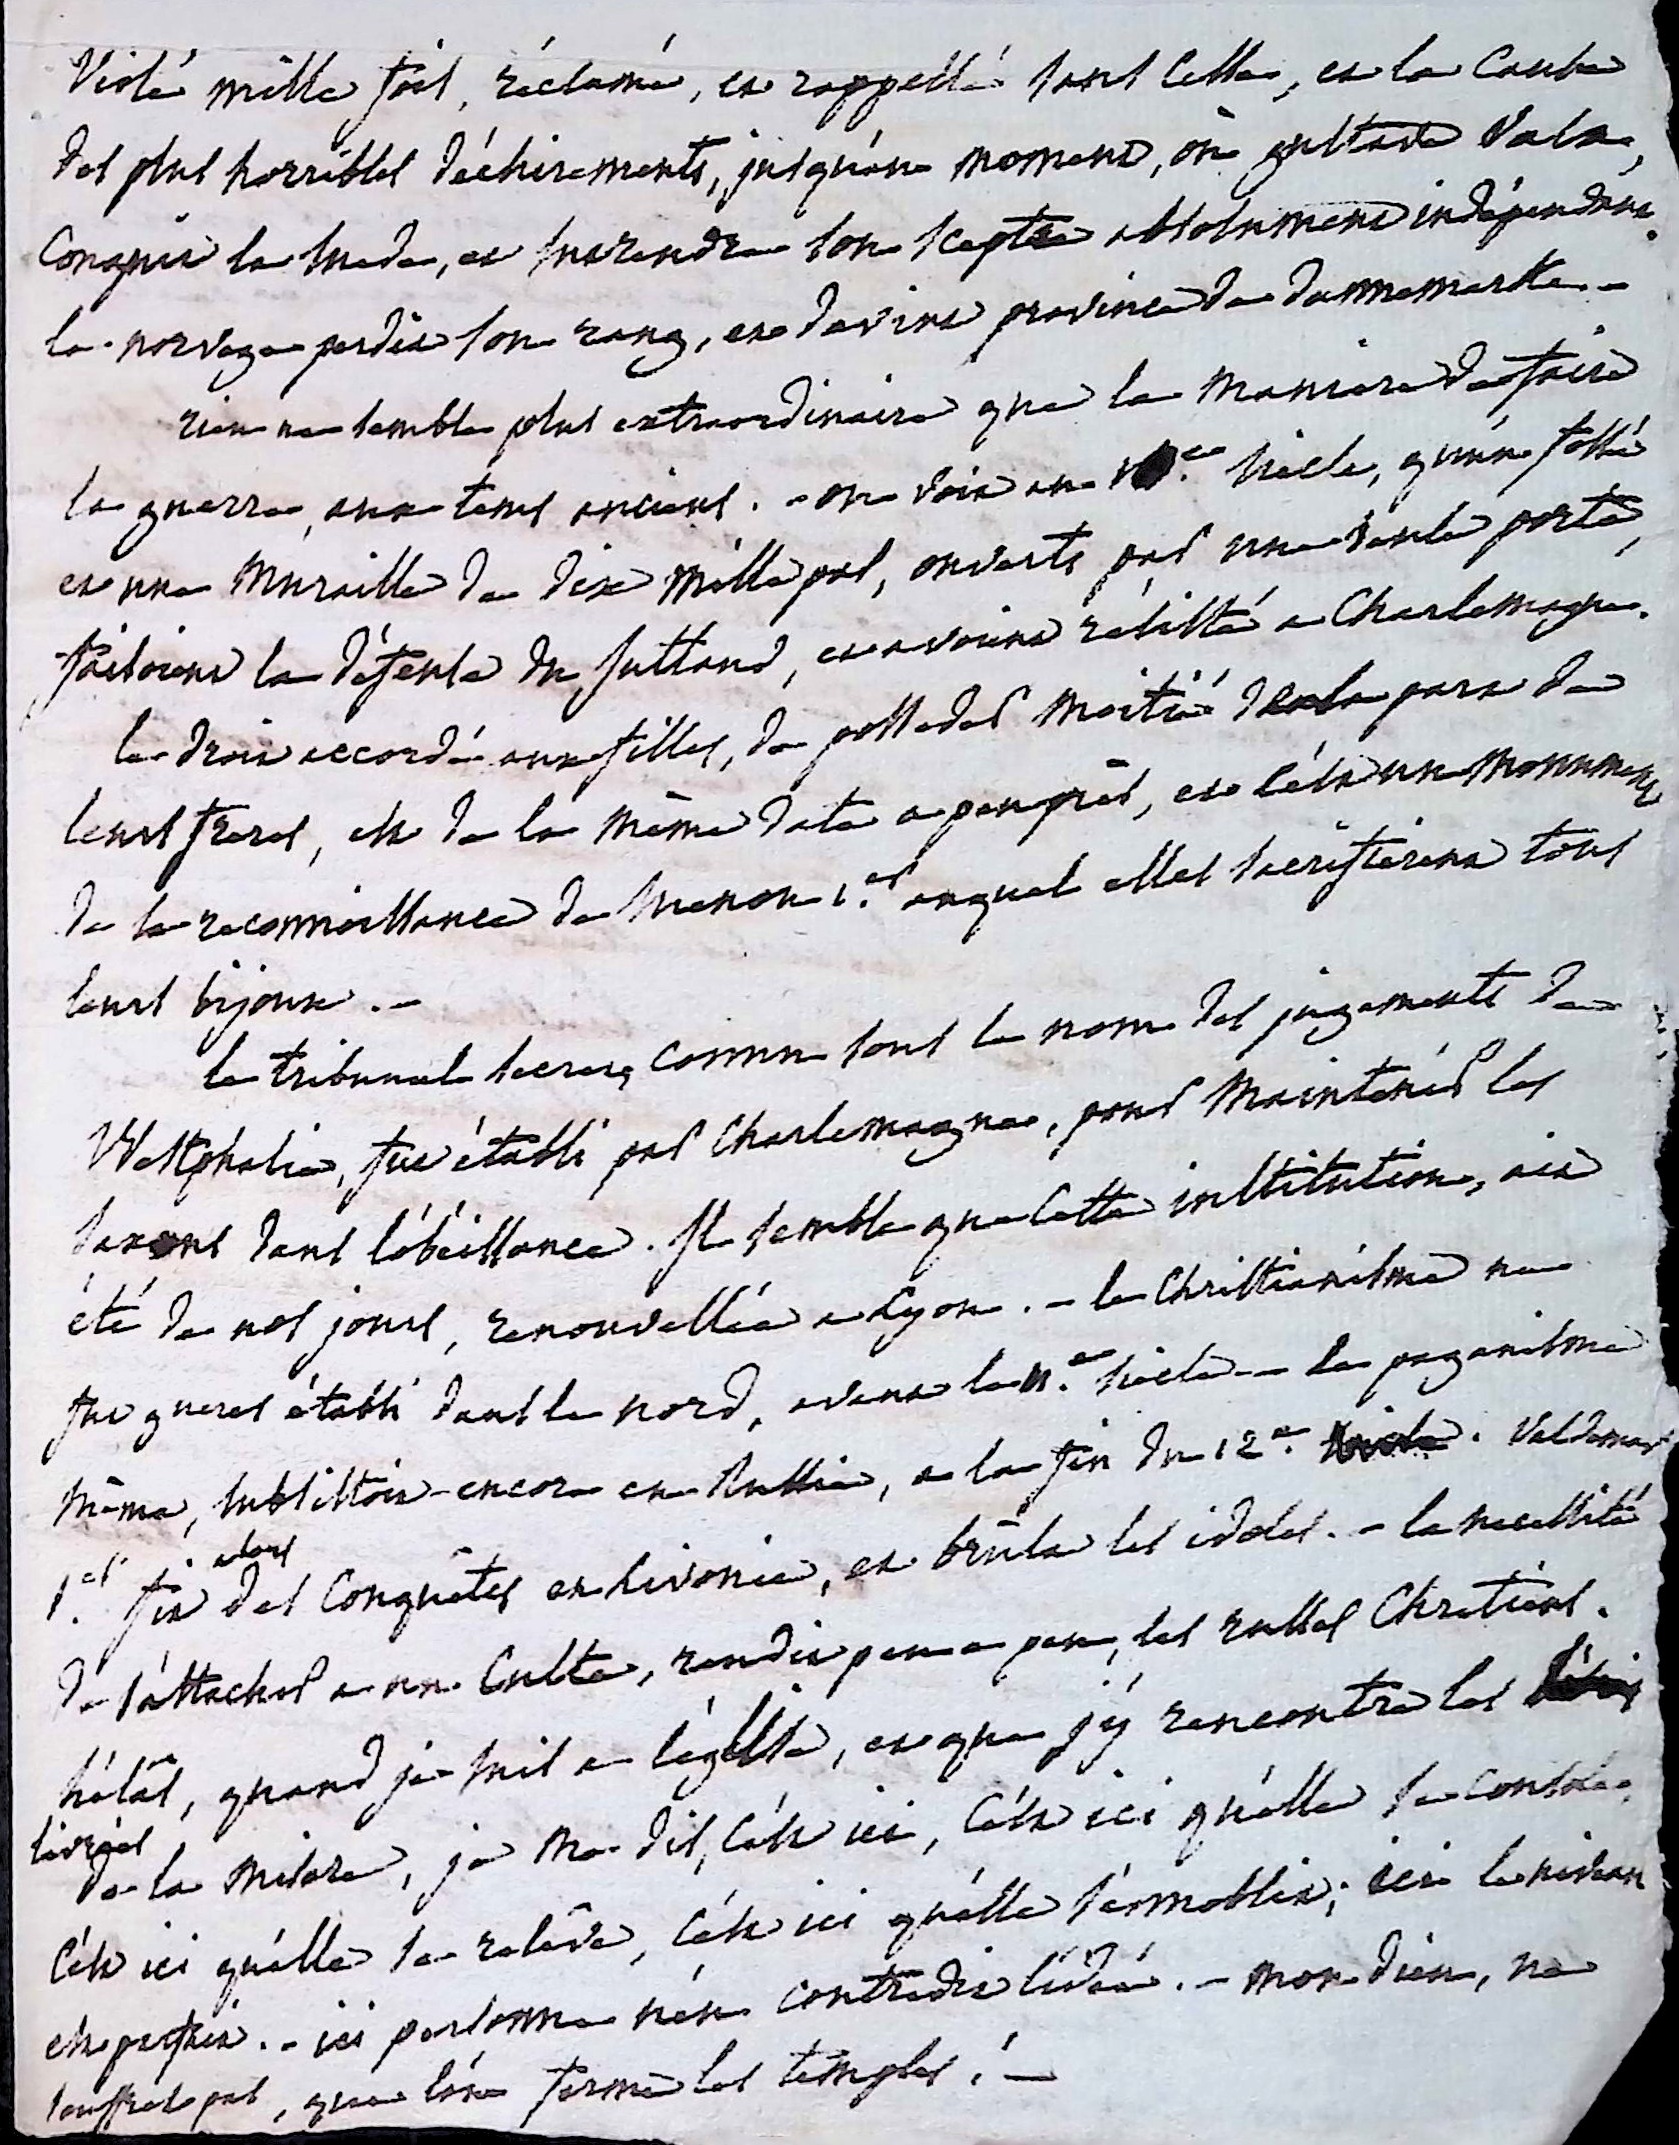 Violé mille fois, réclamé, et rappellé sans cesse, et la cause
des plus horribles déchirements, jusqu'au moment, où gustave Vasa,
Conquit la suede, et sut rendre son sceptre absolument indépendant.
la norvege perdit son rang, et devint province de dannemarck. -
rien ne semble plus extraordinaire que la maniere de faire
la guerre, aux tems anciens. - on voit au siecle, qu'un fossé
et une muraille de dix mille pas, ouverts par une seule porte,
faisoient la défense du Jutland, et avoient résisté a Charlemagne.
le droit accordé aux filles, de posseder moitié de la part de
leurs freres, est de la même date a peu près, et c'est un monument
de la reconnoissance de Suenon 1.er auquel elles sacrifierent tous
leurs bijoux. -
le tribunal secret, connu sous le nom des jugements de
Westphalie, fut établi par Charlemagne, pour maintenir les
saxons dans l'obéissance. Il semble que cette institution, ait
été de nos jours, renouvellée a Lyon. - le Christianisme ne
fut gueres établi dans le nord, avant le 11.e siecle - le paganisme
même, subsistoit encore en Russie, a la fin du 12.e. Valdemar
1.er fit alors des Conquêtes en Livonie, et brûla les idoles. - la necessité
de s'attacher a un Culte, rendit peu a peu, les russes Chretiens.
hélas, quand je suis a l'église, et que j'y rencontre les
livrées de la misere, je me dis, c'est ici, c'est ici qu'elle se console,
c'est ici qu'elle se releve, c'est ici qu'elle s'ennoblit; ici le niveau
est parfait. - ici personne n'en contredit l'idée. - mon dieu, ne
souffrez pas, que l'on ferme les temples! -